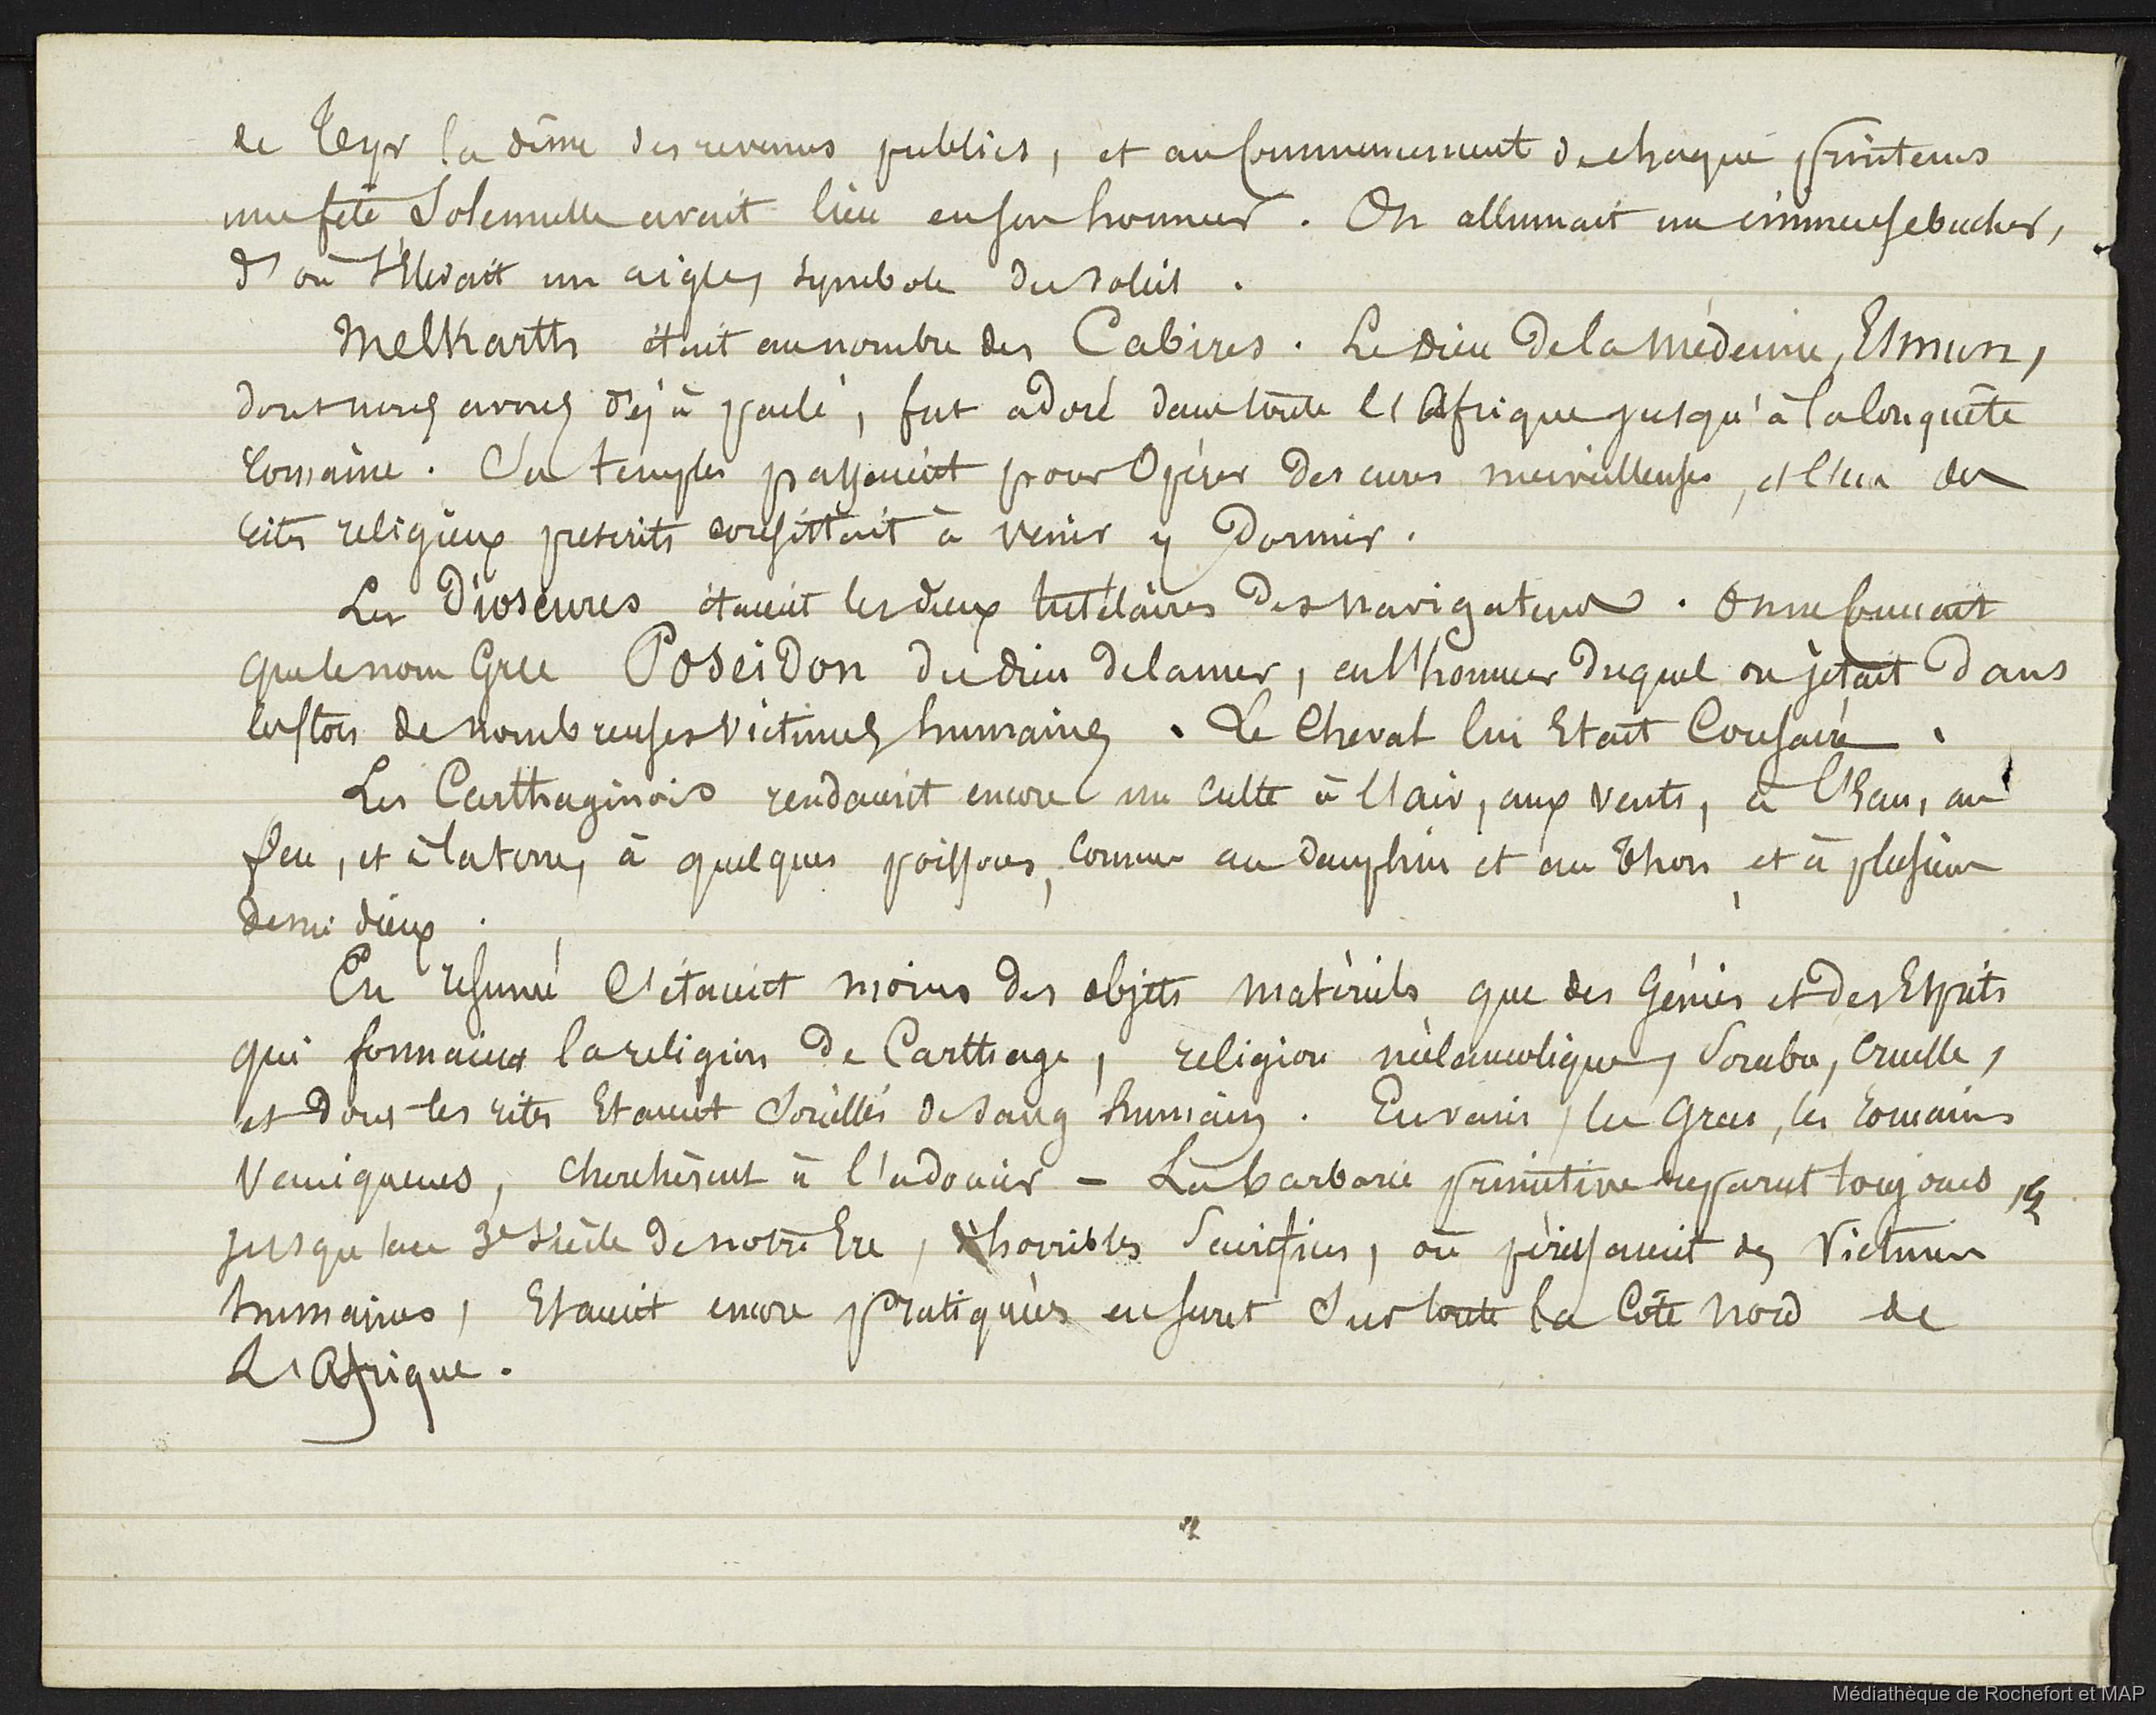 de Tyr la dîme des revenus publics, et au Commencement de chaque printems
une fête Solennelle avait lieu en son honneur. On allumait un immense bucher,
d'où s'élevait un aigle, symbole du soleil.
Melkarth était au nombre des Cabires. Le dieu de la Médecine, Esmun,
dont nous avons déjà parlé, fut adoré dans toute l'Afrique jusqu'à la Conquête
romaine. Ses temples passaient pour Opérer des cures merveilleuses, et l'un des
rites religieux prescrits consistait à venir y Dormir.
Les Dioscures étaient les dieux tutélaires des navigateurs. On ne connait
que le nom Grec Poseidon du dieu de la mer, en l'honneur duquel on jetait dans
les flots de nombreuses victimes humaines. Le Cheval lui Etait Consacré.
Les Carthaginois rendaient encore un culte à l'air, aux vents, à l'Eau, au
feu, et à la terre, à quelques poissons, comme au dauphin et au thon, et à plusieurs
demi dieux.
En résumé C'étaient moins des objets matériels que des Génies et des Esprits
qui formaient la religion de Carthage, religion mélancolique, Sombre, Cruelle,
et dont les rites Etaient Souillés de sang humain. En vain, les Grecs, les romains
vainqueurs, cherchèrent à l'adoucir - La barbarie primitive reparut toujours, &
jusqu'au 3e siècle de notre Ere, d'horribles Sacrifices, où périssaient des Victimes
humaines, Etaient encore pratiqués en secret Sur toute la Côte nord de
L'Afrique.
Médiathèque de Rochefort et MAP